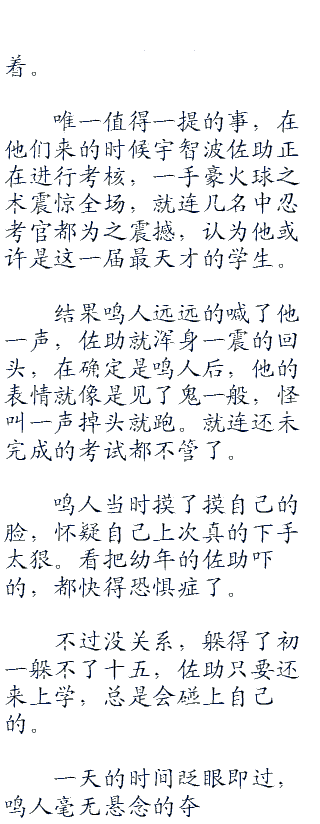 着。
唯一值得一提的事，在
他们来的时候宇智波佐助正
在进行考核，一手豪火球之
术震惊全场，就连几名中忍
考官都为之震撼，认为他或
许是这一届最天才的学生。
结果鸣人远远的喊了他
一声，佐助就浑身一震的回
头，在确定是鸣人后，他的
表情就像是见了鬼一般，怪
叫一声掉头就跑。就连还未
完成的考试都不管了。
鸣人当时摸了摸自己的
脸，怀疑自己上次真的下手
太狠。看把幼年的佐助吓
的，都快得恐惧症了。
不过没关系，躲得了初
一躲不了十五，佐助只要还
来上学，总是会碰上自己
的。
一天的时间眨眼即过，
鸣人毫无悬念的夺